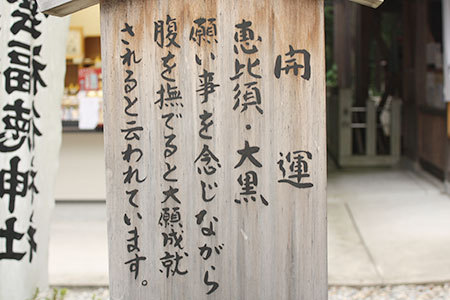 開運
恵比須・大黒
願い事を念じながら
腹を撫でると大願成就
されると云われています。
福徳神社